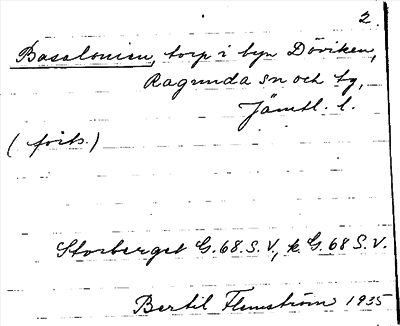 2.
Basalonien, torp i byn Döviken,
Ragunda sn och tg,
Jämtl. l.
(forts.)
Storberget G.68.S.V., k. G.68 S.V.
Bertil Flemström 1935